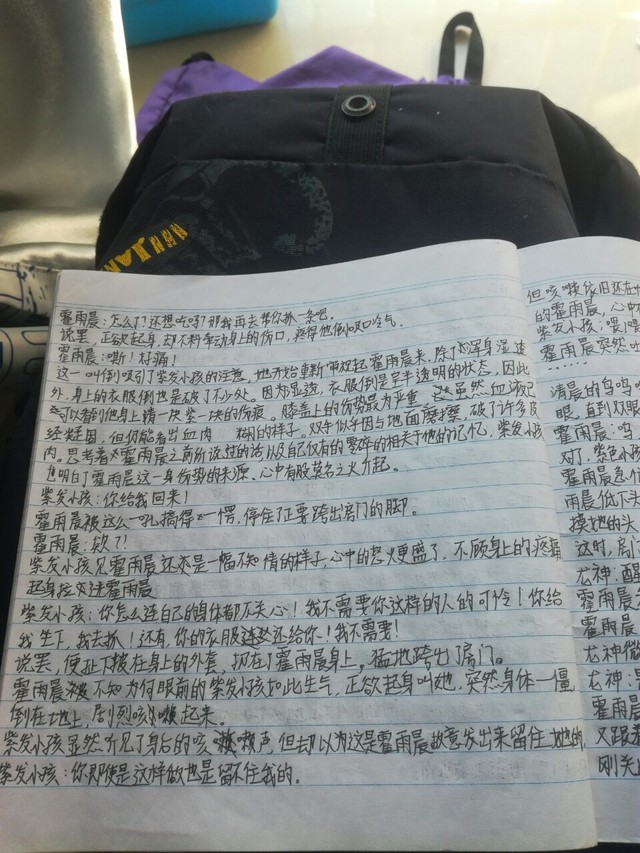 霍雨晨：怎么了？还想吃吗？那我再去帮你抓一条吧。
说罢，正欲起身，却不料牵动身上的伤口，疼得他倒吸口冷气。
霍雨晨：嘶！好痛！
这一叫倒吸引了紫发小孩的注意，她开始重新审视起霍雨晨来，除了浑身湿透
外，身上的衣服倒也是破了不少处。因为湿透，衣服倒是呈半透明的状态，因此
可以看到他身上青一块紫一块的伤痕。膝盖上的伤势最为严重，虽然血液已
经凝固，但仍能看出血肉 糊的样子。双手似乎因与地面摩擦，破了许多皮
肉。思考着霍雨晨之前所说过的话以及自己仅有的零碎的相关于他的记忆，紫发小孩
也明白了霍雨晨这一身伤势的来源。心中有股莫名之火升起。
紫发小孩：你给我回来！
霍雨晨被这么一吼搞得一愣，停住了正要跨出房门的脚。
霍雨晨：欸？！
紫发小孩见霍雨晨还是一幅不知情的样子，心中的怒火更盛了，不顾身上的疼痛
起身 霍雨晨
紫发小孩：你怎么连自己的身体都不关心！我不需要你这样的人的可怜！你给
我坐下，我去抓！还有，你的衣服还给你！我不需要！
说罢，便扯下披在身上的外套，扔在了霍雨晨身上，猛地跨出了房门。
霍雨晨不知为何眼前的紫发小孩如此生气，正欲起身叫她，突然身体一僵
倒在地上，剧烈咳嗽起来。
紫发小孩显然听见了身后的咳嗽声，但却以为这是霍雨晨故意发出来留住她的。
紫发小孩：你即使是这样做也是留不住我的。
但咳嗽依旧还在
的霍雨晨，心中
紫发小孩：喂！
霍雨晨突然
……
清晨的鸟鸣
眼，直到双眼
霍雨晨：呜
对了，紫色小孩
霍雨晨急
雨晨低下头
摸她的头
这时，房门
龙神：醒
霍雨晨
霍雨晨
龙神微
龙神：是
霍雨晨
又跟着
刚关